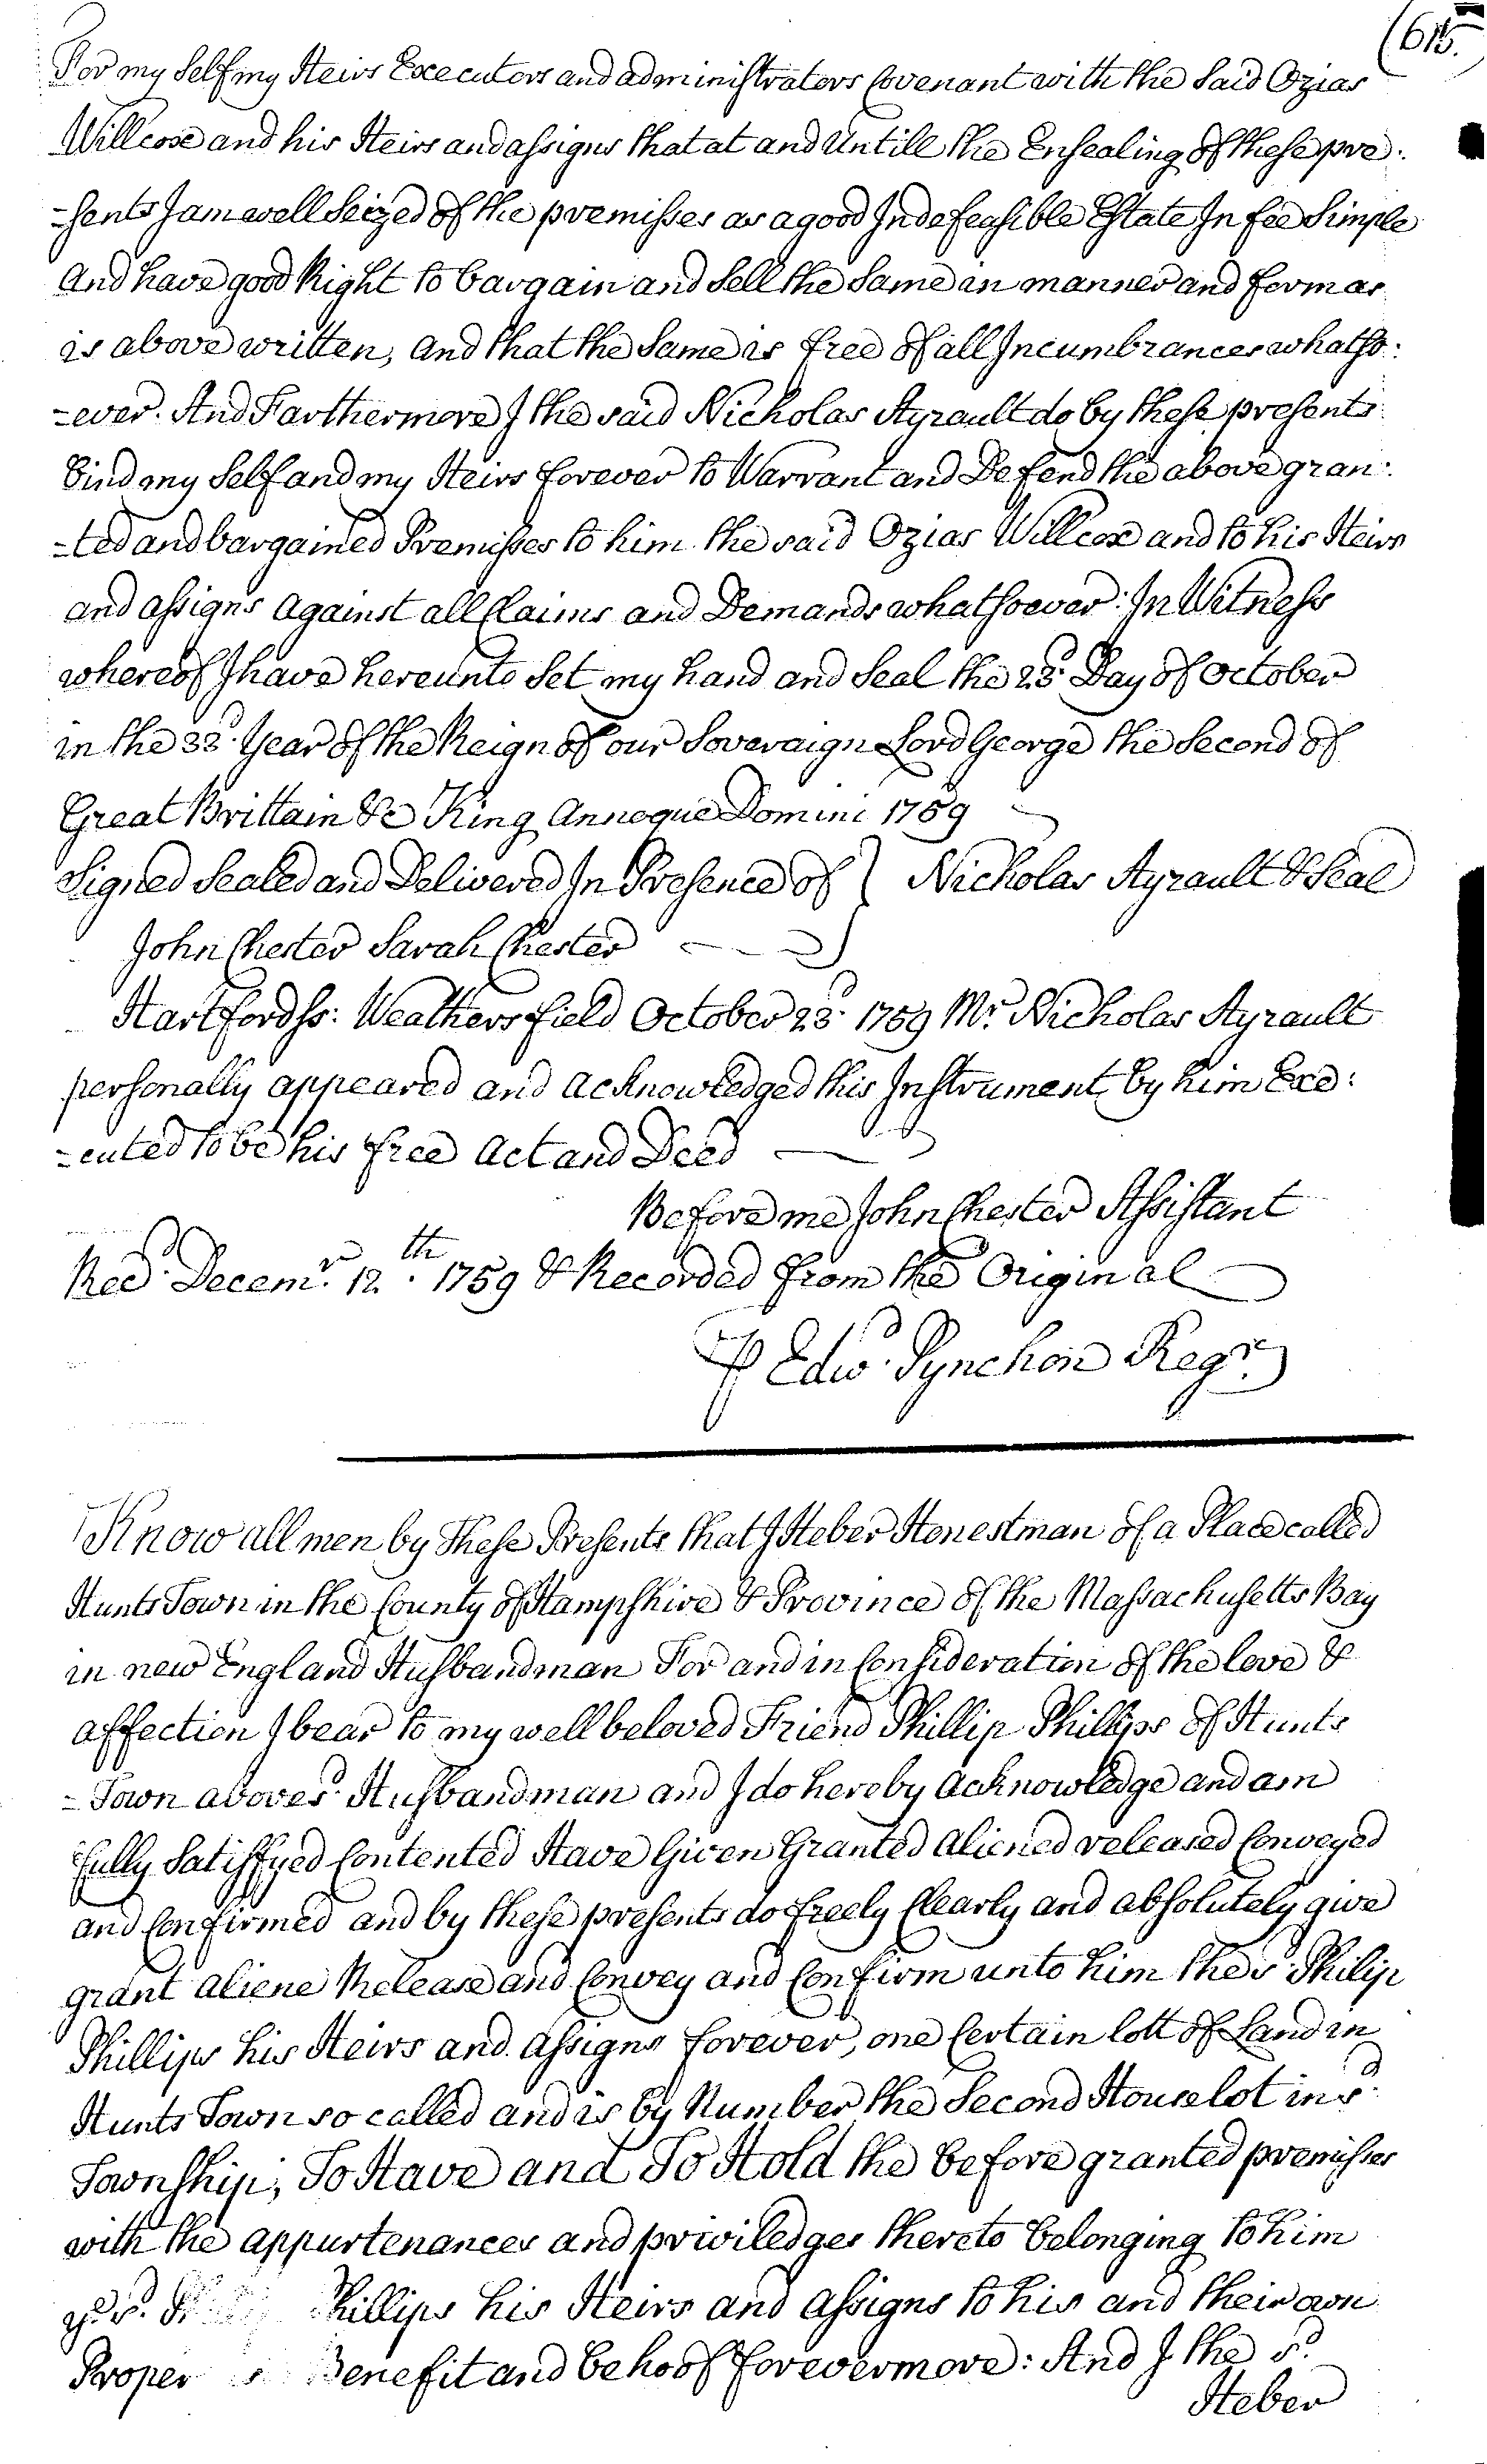 (615.
For my Self my Heirs Executors and administrators Covenant with the Said Ozias
Willcox and his Heirs and assigns that at and Untill the Ensealing of these pre:
-sents I am well Seized of the premisses as a good Indefeasible Estate In fee Simple
And have good Right to bargain and Sell the Same in manner and form as
is above written, and that the Same is free of all Incumbrances whatso:
-ever. And Farthermore I the said Nicholas Ayrault do by these presents
bind my Self and my Heirs forever to Warrant and Defend the above gran:
-ted and bargained Premisses to him the said Ozias Willcox and to his Heirs
and assigns against all Claims and Demands whatsoever: In Witness
whereof I have hereunto Set my hand and Seal the 23d. Day of October
in the 33d. Year of the Reign of our Soveraign Lord George the Second of
Great Brittain &c King Annoque Domini 1759
Signed Sealed and Delivered In Presence of } Nicholas Ayrault & Seal
John Chester Sarah Chester
Hartford ss: Weathersfield October 23d. 1759 Mr. Nicholas Ayrault
personally appeared and acknowledged this Instrument by him Exe:
-cuted to be his free act and Deed
Before me John Chester Assistant
Recd. Decemr. 12th. 1759 & Recorded from the Original
P Edwd. Pynchon Regr.
Know all men by These Presents that I Heber Honestman of a Place called
Hunts Town in the County of Hampshire & Province of the Massachusetts Bay
in new England Husbandman For and in Consideration of the love &
affection I bear to my well beloved Friend Phillip Phillips of Hunts
-Town aboves.d Husbandman and I do hereby acknowledge and am
fully Satisfyed Contented Have Given Granted aliened released Conveyed
and Confirmed and by these presents do freely Clearly and absolutely give
grant aliene Release and Convey and Confirm unto him the sd. Philip
Phillips his Heirs and assigns forever, one Certain lott of Land in
Hunts Town so called and is by Number the Second House lot in sd.
Township, To Have and To Hold the before granted premisses
with the appurtenances and priviledges thereto belonging to him
ye. sd. Phillips his Heirs and assigns to his and their own
Proper Benefit and behoof forevermore: And I the sd.
Heber